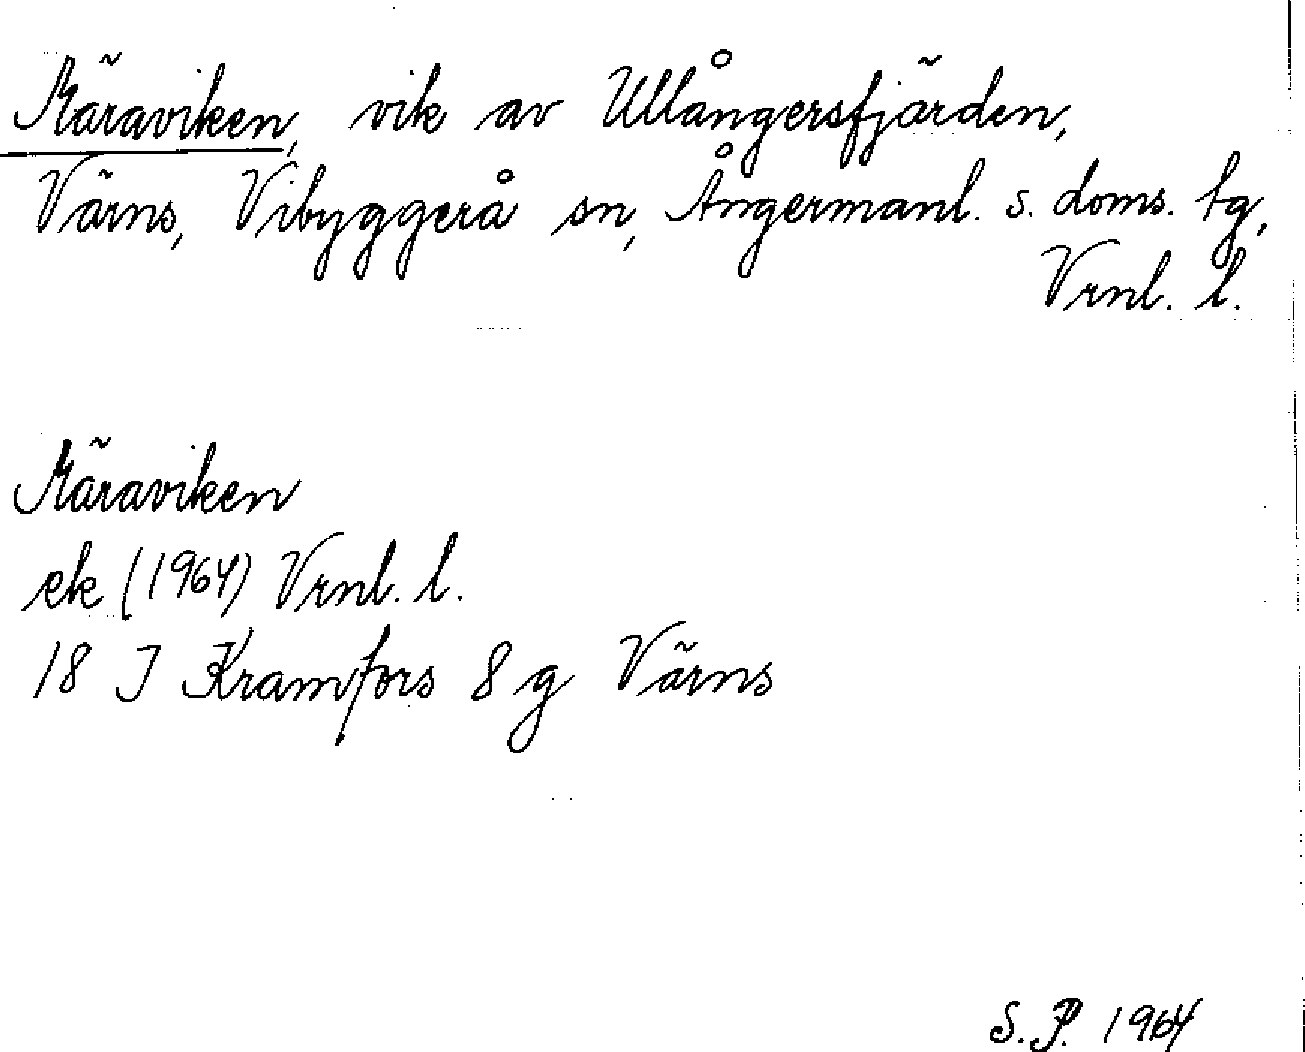 Märaviken, vik av Ullångersfjärden,
Värns, Vibyggerå sn, Ångermanl. s. doms. tg,
Vrnl. l.
Märaviken
ek (1964) Vrnl. l.
18 I Kramfors 8 g Värns
S.P. 1964